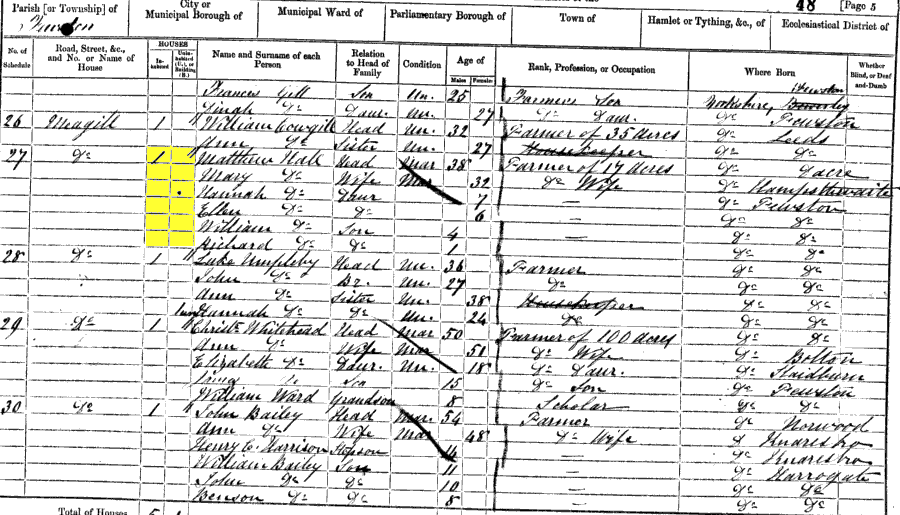 48 [Page 5
Parish [or Township] of
City or
Municipal Borough of
Municipal Ward of
Parliamentary Borough of
Town of
Hamlet or Tything, &c., of
Ecclesiastical District of
No. of Schedule
Road, Street, &c., and No. or Name of House
HOUSES
In-habited
Unin-habited (U.), or Building (B.)
Name and Surname of each Person
Relation to Head of Family
Condition
Age of
Males
Females
Rank, Profession, or Occupation
Where Born
Whether Blind, or Deaf-and-Dumb
Frances Gill Son Un. 25 Farmers Son Yorkshire, Fewston
Do Daur. Un. 27 Do Daur. Do Fewston
26 Meagill 1 William Cowgill Head Un. 32 Farmer of 35 acres Do Leeds
Ann Do Sister Un. 27 Housekeeper Do Do
27 Do 1 Matthew Hall Head Mar 38 Farmer of 17 acres Do Dacre
Mary Do Wife Mar 32 Do Wife Do Hampsthwaite
Hannah Do Daur 7 — Do Fewston
Ellen Do Do 6 — Do Do
William Do Son 4 — Do Do
Richard Do Do 1 — Do Do
28 Do 1 Luke Umpleby Head Un. 36 Farmer Do Do
John Do Br. Un. 27 Do Do Do
Ann Do Sister Un. 38 Housekeeper Do Do
Hannah Do Do Un. 24 Do Do Do
29 Do 1 Christr Whitehead Head Mar 50 Farmer of 100 acres Do Do
Ann Do Wife Mar 51 Do Wife Do Bolton
Elizabeth Do Daur. Un. 18 Do Daur. Do Slaidburn
Do Son 15 Do Son Do Fewston
William Ward Grandson 8 Scholar Do Do
30 Do 1 John Bailey Head Mar. 54 Farmer Do Norwood
Ann Do Wife Mar 48 Do Wife Do Knaresbro
Henry C. Harrison Stepson 14 — Do Knaresbro
William Bailey Son 11 — Do Harrogate
John Do Do 10 — Do Do
Benson Do Do 8 — Do Do
Total of Houses 5